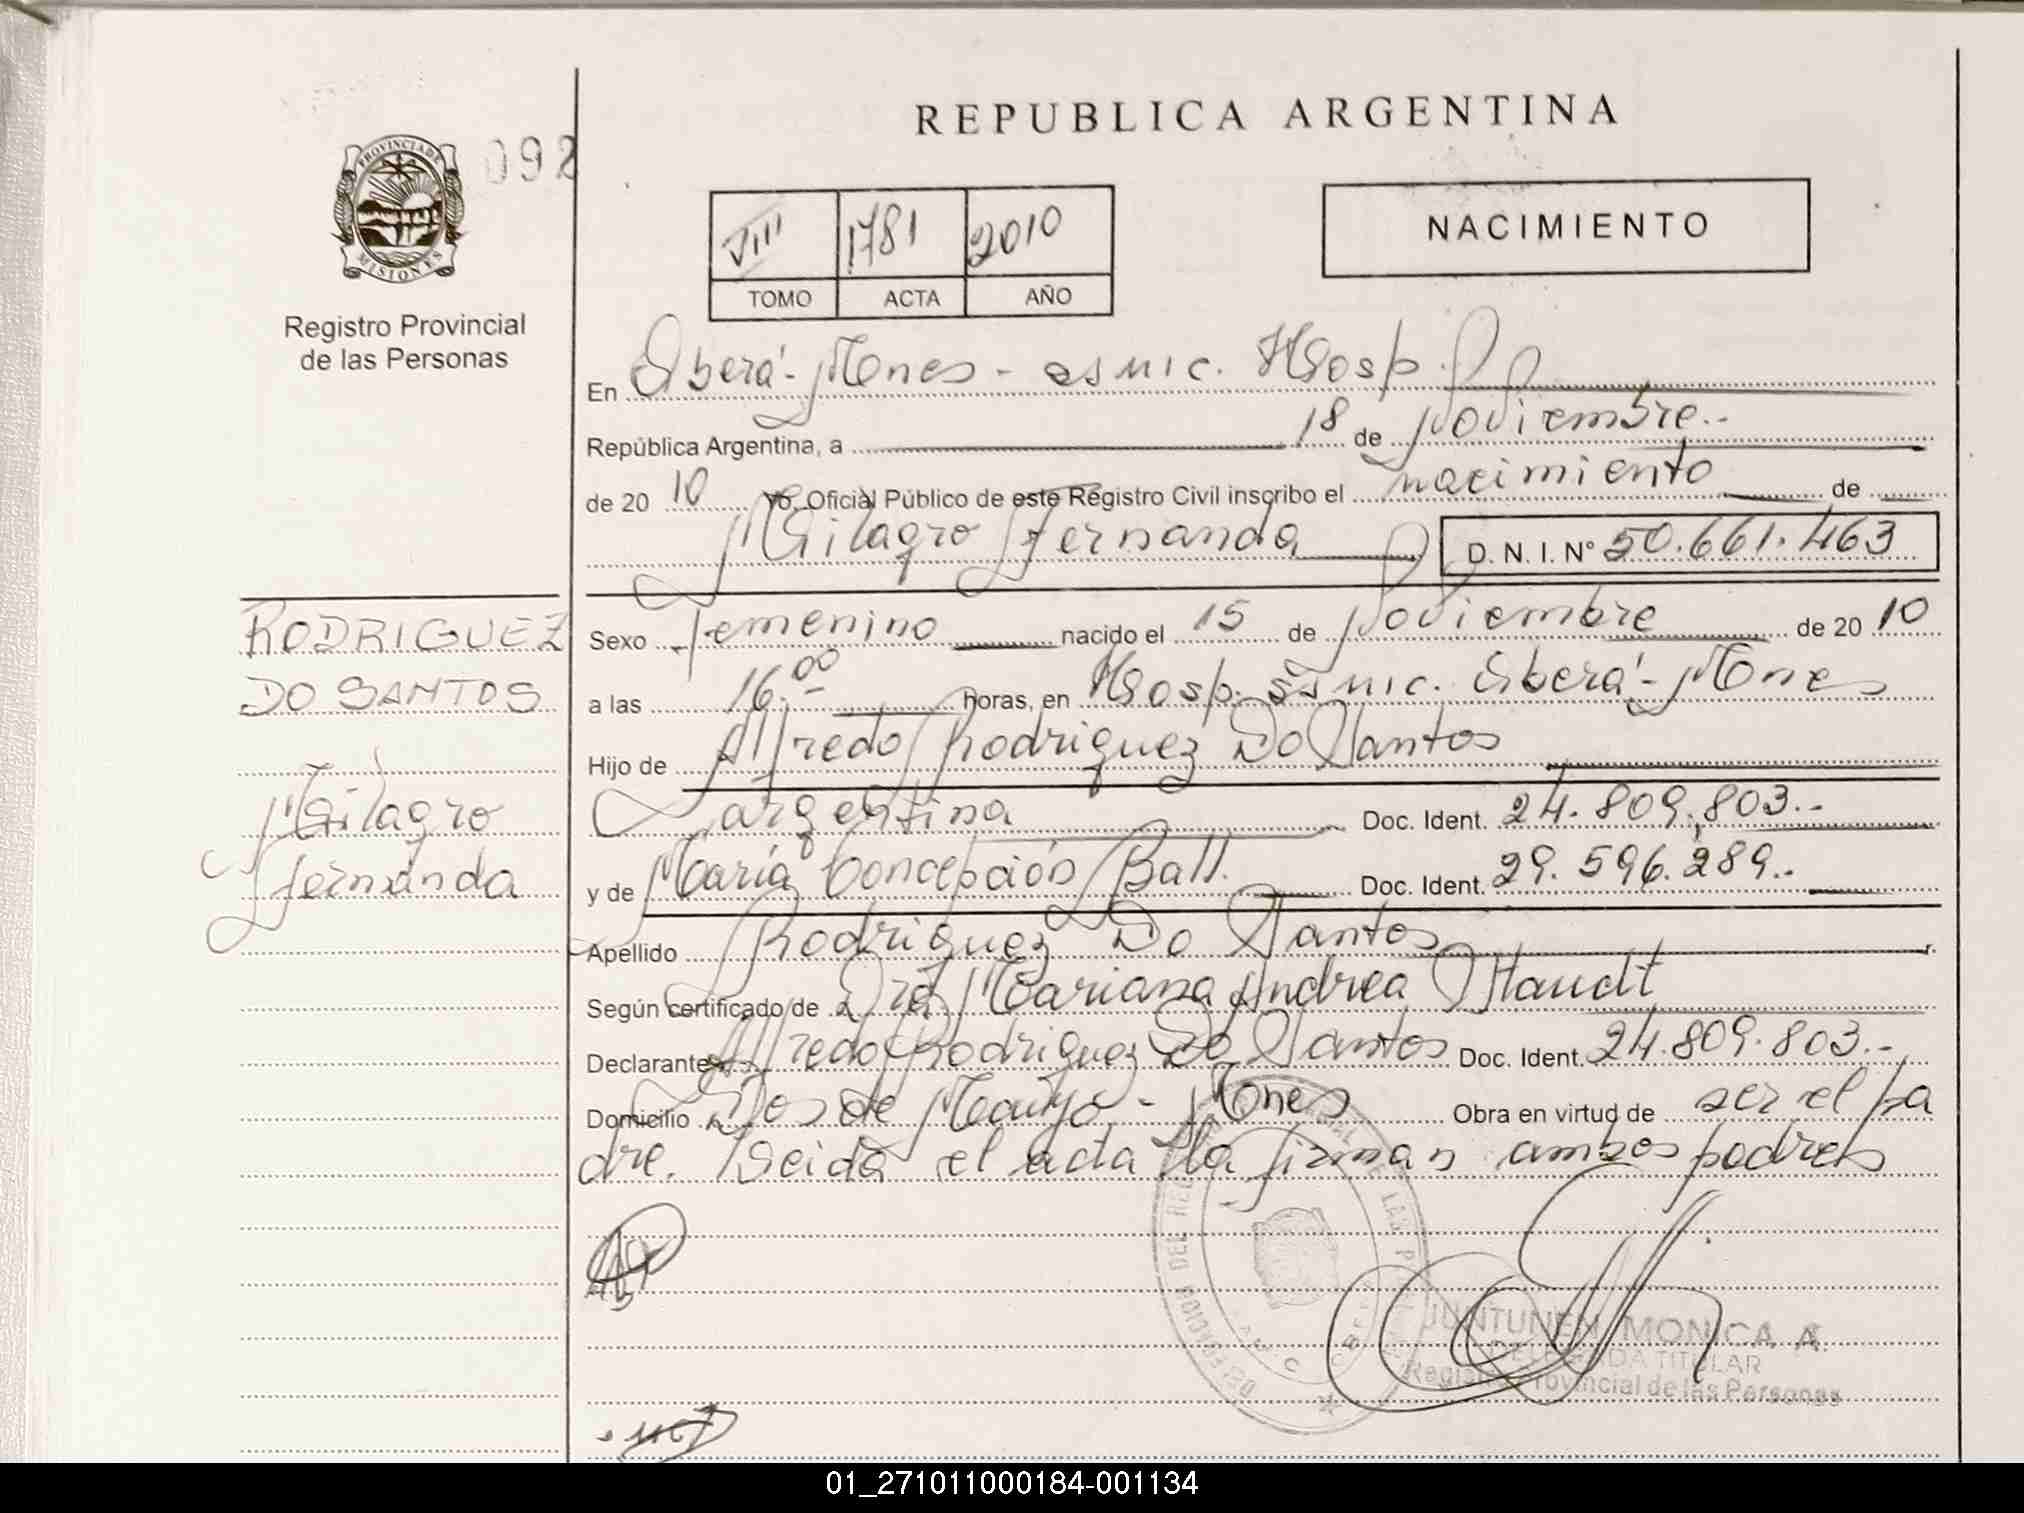 REPUBLICA ARGENTINA
PROVINCIA DE
MISIONES
092
Registro Provincial
de las Personas
VIII 1781 2010
TOMO ACTA AÑO
NACIMIENTO
En Oberá - Mnes - Hosp.
República Argentina, a 18 de Noviembre..
de 20 10 Yo, Oficial Público de este Registro Civil inscribo el nacimiento de
Milagro Fernanda D. N. I. Nº 50.661.463
RODRIGUEZ
DO SANTOS
Milagro
Fernanda
Sexo femenino nacido el 15 de Noviembre de 20 10
a las 16.00 horas, en Hosp. Oberá - Mnes
Hijo de Alfredo Rodriguez Do Santos
argentina Doc. Ident. 24.809.803.-
y de María Concepción Ball. Doc. Ident. 29.596.289.-
Apellido Rodriguez Do Santos
Según certificado de Dra Mariana Andrea Staudt
Declarante Alfredo Rodriguez Do Santos Doc. Ident. 24.809.803.-
Domicilio Dos de Mayo - Mnes Obra en virtud de ser el pa
dre. Leida el acta la firman ambos padres
JUNTUNEN MONICA A.
DELEGADA TITULAR
Registro Provincial de las Personas
01_271011000184-001134